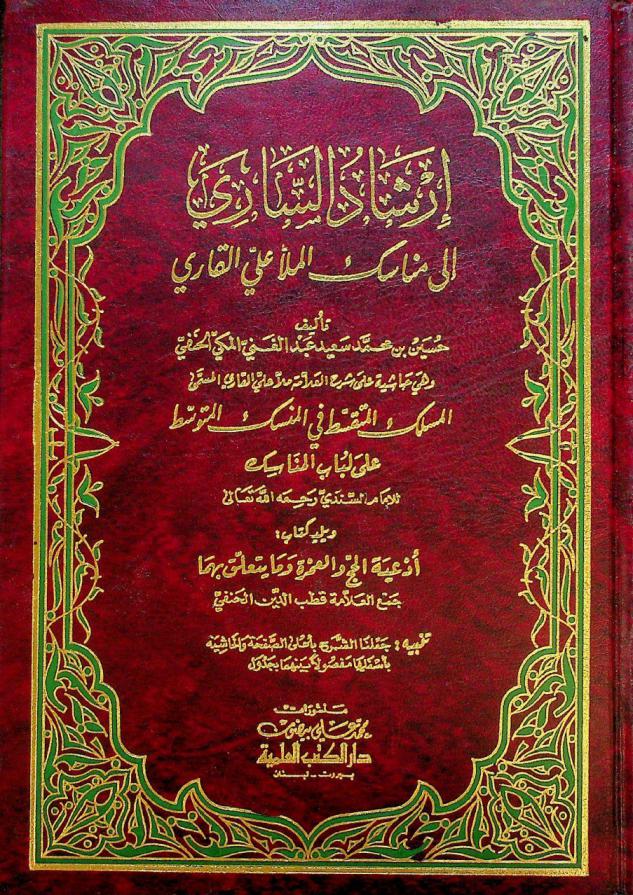 إرشاد الساري
إلى مناسك الملا علي القاري
تأليف
حسين بن محمد سعيد عبد الغني المكي الحنفي
وهي حاشية على شرح العلامة ملا علي القاري المسمى
المسلك المتقسط في المنسك المتوسط
على لباب المناسك
للإمام السندي رحمه الله تعالى
ويليه كتاب:
أدعية الحج والعمرة وما يتعلق بهما
جمع العلامة قطب الدين الحنفي
تنبيه: جعلنا الشرح بأعلى الصفحة والحاشية
بأسفلها مفصولا بينهما بجدول
منشورات
محمد علي بيضون
دار الكتب العلمية
بيروت - لبنان